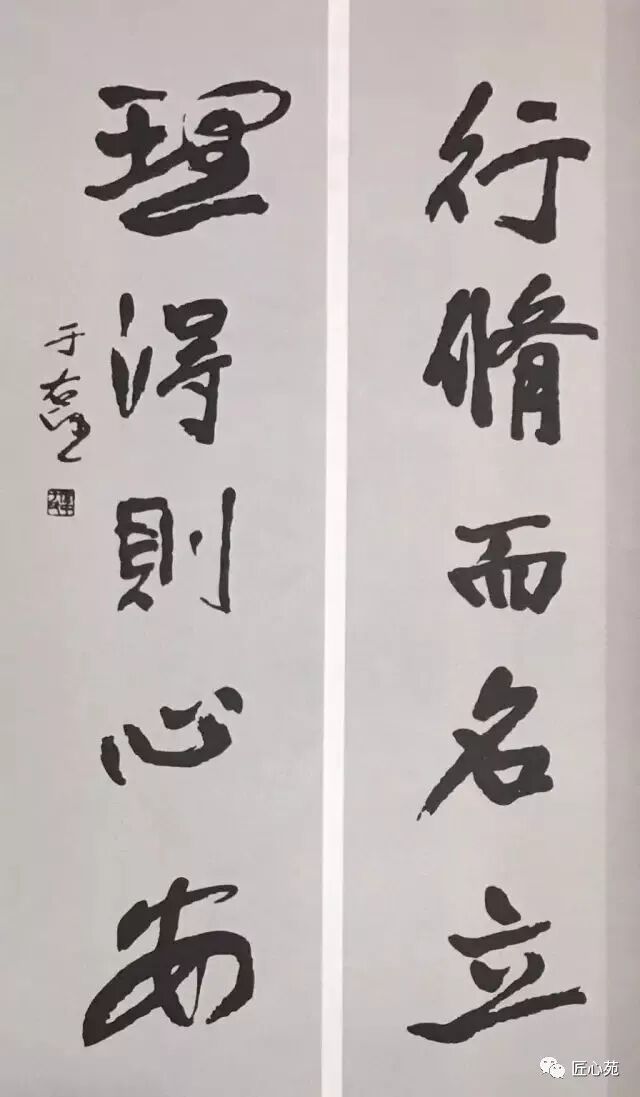 行脩而名立
理得則心安
于右任
匠心苑